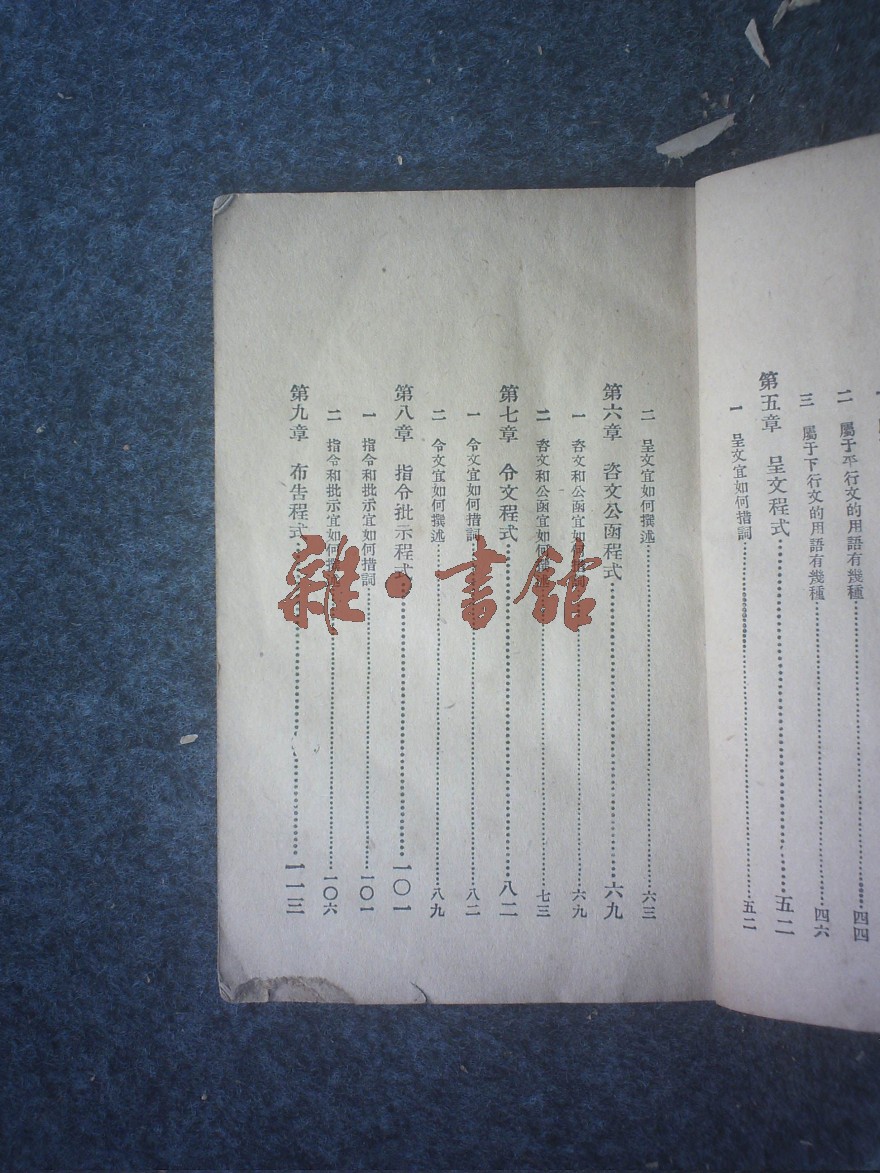 二　屬于平行文的用語有幾種……四四
三　屬于下行文的用語有幾種……四六
第五章　呈文程式……五二
一　呈文宜如何措詞……五二
二　呈文宜如何撰述……六三
第六章　咨文公函程式……六九
一　咨文和公函宜如何措詞……六九
二　咨文和公函宜如何撰述……七三
第七章　令文程式……八二
一　令文宜如何措詞……八二
二　令文宜如何撰述……八九
第八章　指令批示程式……一〇一
一　指令和批示宜如何措詞……一〇一
二　指令和批示宜如何撰述……一〇六
第九章　布告程式……一一三
雜·書館